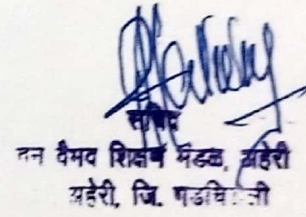 सचिव
वन वैभव शिक्षण मंडळ, अहेरी
अहेरी, जि. गडचिरोली